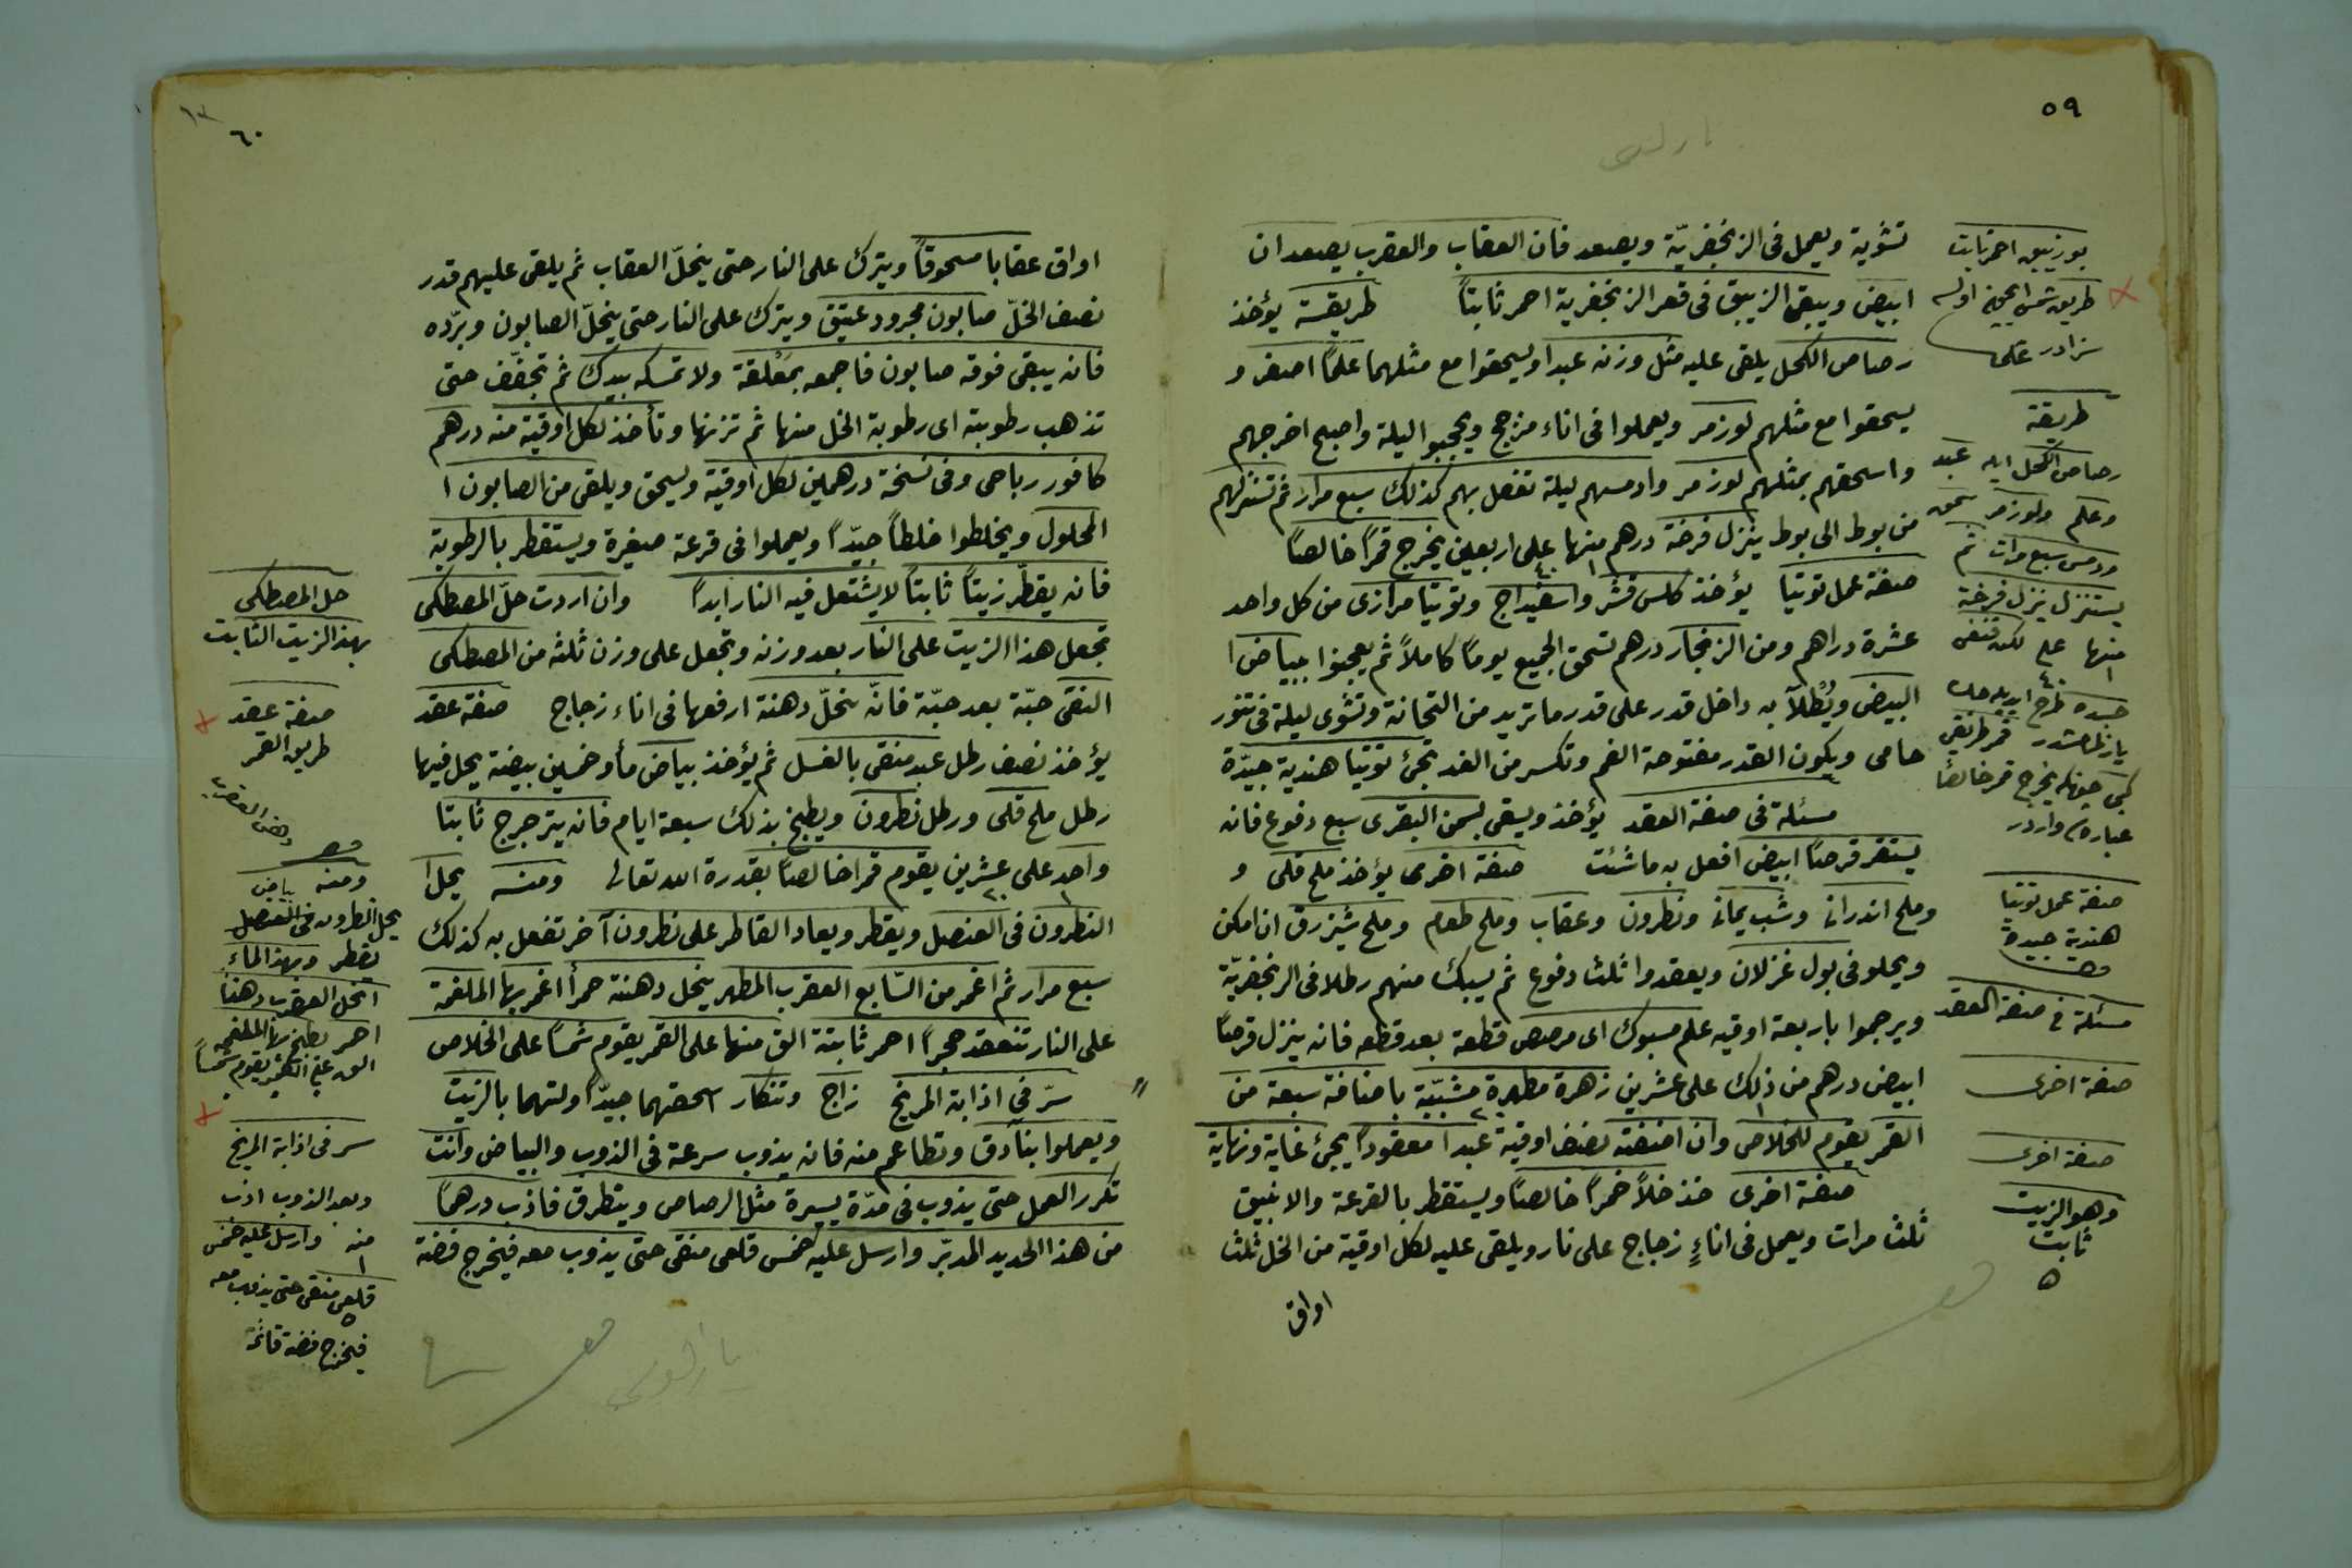 ٥٩
تشوية ويعمل فى الزنجفريّة ويصعد فان العقاب والعقرب يصعدان
ابيض ويبقى الزيبق فى قعر الزنجفرية احمر ثابتاً طريقة يؤخذ
رصاص الكحل يلقى عليه مثل وزنه عبدا ويسحقوا مع مثلهما علماً اصفر و
يسحقوا مع مثلهم لوزمر ويعملوا فى اناء مزجج ويحجبوا ليلة واصبح اخرجهم
واسحقهم بمثلهم لوزمر وادمسهم ليلة تفعل بهم كذلك سبع مرار ثم تستنزلهم
من بوط الى بوط ينزل فرخة درهم منها على اربعين يخرج قمراً خالصاً
صفة عمل توتيا يؤخذ كلس قشر واسفيداج وتوتيا مرازى من كل واحد
عشرة دراهم ومن الزنجار درهم تسحق الجميع يوماً كاملاً ثم يعجنوا ببياض ا
البيض ويُطلاَ به داخل قدر على قدر ما تريد من التخانة وتشوى ليلة فى تنور
حامى ويكون القدر مفتوحة الفم وتكسر من الغد تجئ توتيا هندية جيّدة
مسئلة فى صفة العقد يؤخذ ويسقى بسمن البقرى سبع دفوع فانه
يستقر قرصاً ابيض افعل به ما شئت صفة اخرى يؤخذ ملح قلى و
وملح اندرانى وشب يمانى ونطرون وعقاب وملح طعام وملح شيزرق ان امكن
ويحلو فى بول غزلان ويعقدوا ثلث دفوع ثم يسبك منهم رطلا فى الزنجفريّة
ويرجموا باربعة اوقيه علم مسبوك اى مرصص قطعة بعد قطعه فانه ينزل قرصاً
ابيض درهم من ذلك على عشرين زهرة مطهرة مشبّبة باضافة سبعة من
القمر يقوم للخلاص وان اضفته نصف اوقية عبدا معقوداً يجئ غاية ونهاية
صفة اخرى خذ خلاً خمراً خالصاً ويستقطر بالقرعة والانبيق
ثلث مرات ويعمل فى اناءٍ زجاج على نار ويلقى عليه لكل اوقية من الخل ثلث
اواق
طريقة
رصاص الكحل ايله عبد
وعلم ولوزمر سحق
ودمس سبع مرات ثم
يستنزل ينزل فرخة
صفة عمل توتيا
هندية جيدة
مسئلة فى صفة العقد
صفة اخرى
صفة اخرى
وهو الزيت
ثابت
٦٠
اواق عقابا مسحوقاً ويترك على النار حتى ينحلّ العقاب ثم يلقى عليهم قدر
نصف الخلّ صابون مجرود عتيق ويترك على النار حتى ينحلّ الصابون وبرّده
فانه يبقى فوقه صابون فاجمعه بمَعْلقة ولا تمسكه بيدك ثم تجفّف حتى
تذهب رطوبته اى رطوبة الخل منها ثم تزنها وتأخذ لكل اوقية منه درهم
كافور رباحى وفى نسخة درهمين لكل اوقية ويسحق ويلقى من الصابون ا
المحلول ويخلطوا خلطاً جيّداً ويعملوا فى قرعة صغيرة ويستقطر بالرطوبة
فانه يقطّر زيتاً ثابتاً لا يشتعل فيه النار ابداً وان اردت حلّ المصطكى
تجعل هذا الزيت على النار بعد وزنه وتجعل على وزن ثلثه من المصطكى
النقى حبّة بعد حبّة فانّه ينحلّ دهنة ارفعها فى اناء زجاج صفة عقد
يؤخذ نصف رطل عبد منقى بالغسل ثم يؤخذ بياض مأو خمسين بيضة يحل فيها
رطل ملح قلى ورطل نطرون ويطبخ بذلك سبعة ايام فانه يترجرج ثابتا
واحد على عشرين يقوم قمرا خالصاً بقدرة الله تعالى ومنه يحل ا
النطرون فى العنصل ويقطر ويعاد القاطر على نطرون آخر تفعل به كذلك
سبع مرار ثم اغمر من السّابع العقرب المطهر ينحل دهنة حمرأ اغمر بها الملغمة
على النار تنعقد حجراً احمر ثابتة الق منها على القمر يقوم شمساً على الخلاص
سرّ فى اذابة المريخ زاج وتنكار اسحقهما جيّداً ولتهما بالزيت
ويعملوا بنادق وتطاعم منه فانه يذوب سرعة فى الذوب والبياض وانت
تكرر العمل حتى يذوب فى مدّة يسيرة مثل الرصاص ويتطرق فاذب درهماً
من هذا الحديد المدبّر وارسل عليه خمس قلعى منقى حتى يذوب معه فيخرج فضة
حل المصطكى
بهذا الزيت الثابت
صفة عقد
طريق القمر
ومنه بياض
يحل النطرون فى العنصل
يقطر وبهذا الماء
انحل العقرب دهناً
احمر يطبخ بها الملغمه
الق على القمر يقوم شمساً
سر فى اذابة المريخ
وبعد الذوب اذب
منه وارسل عليه خمس
قلعى منقى حتى يذوب معه
فيخرج فضة قائمة